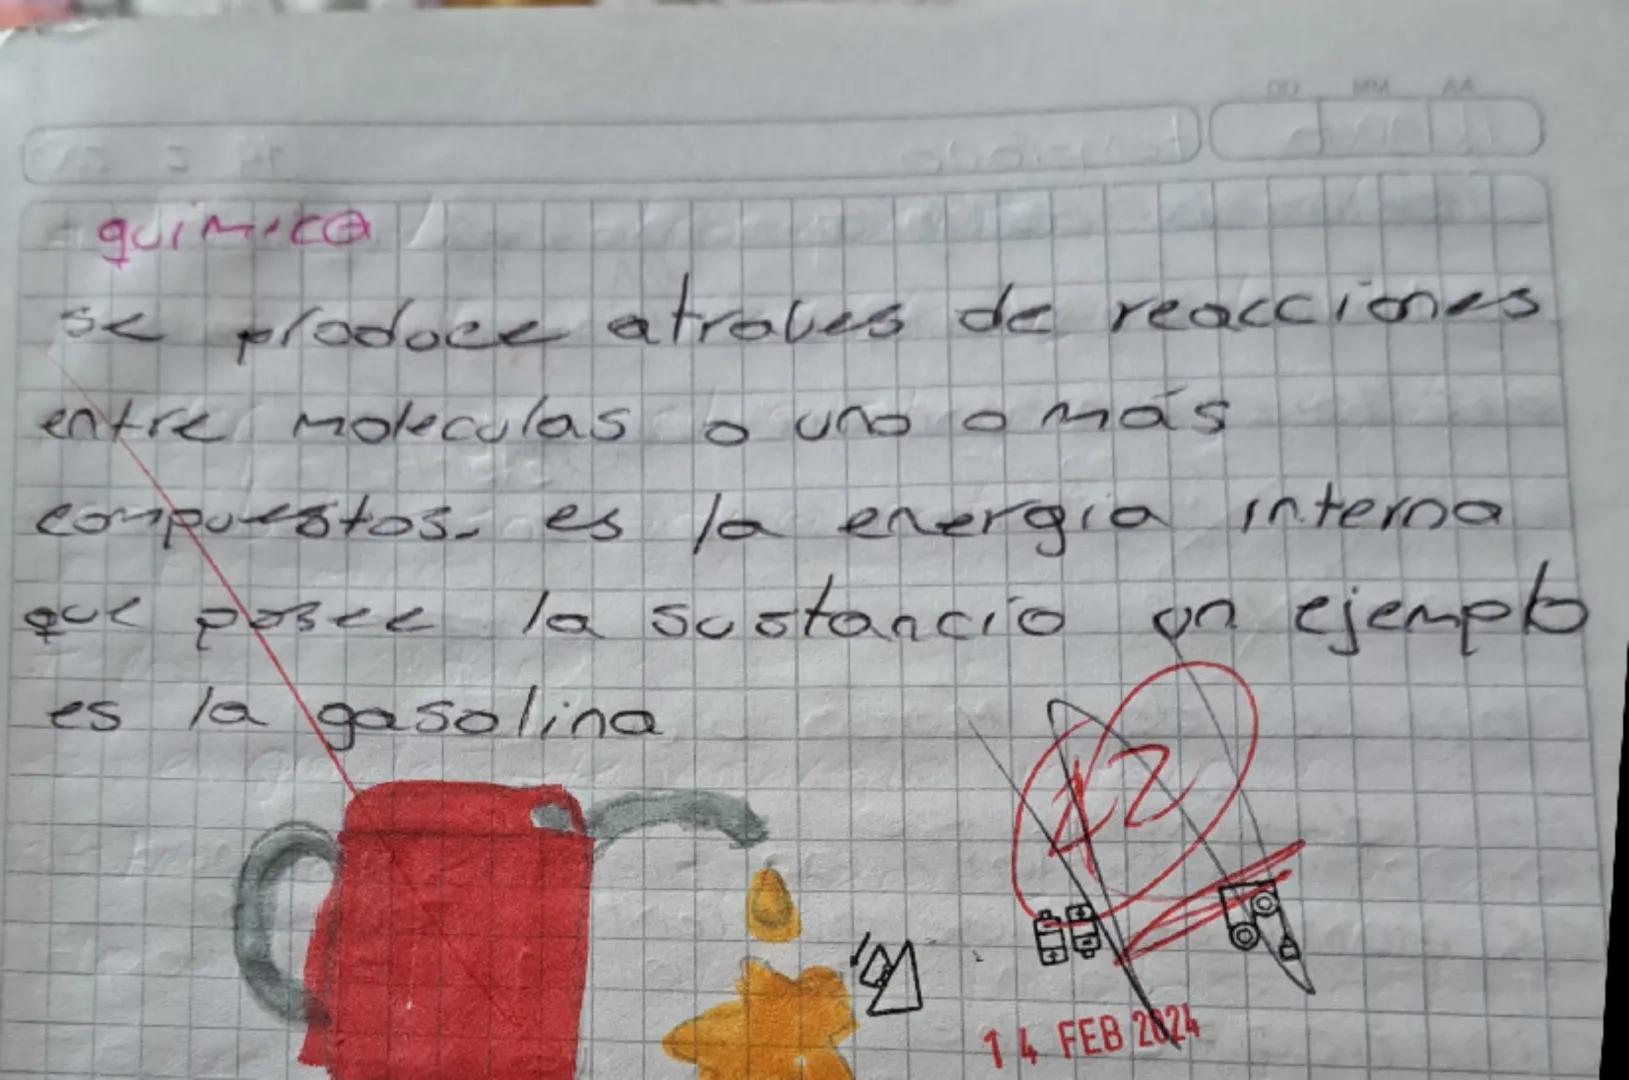 DD MM AA
quimica
se produce atraves de reacciones
entre moleculas o uno o más
compuestos. es la energia interna
que posee la sustancia un ejemplo
es la gasolina
14 FEB 2024